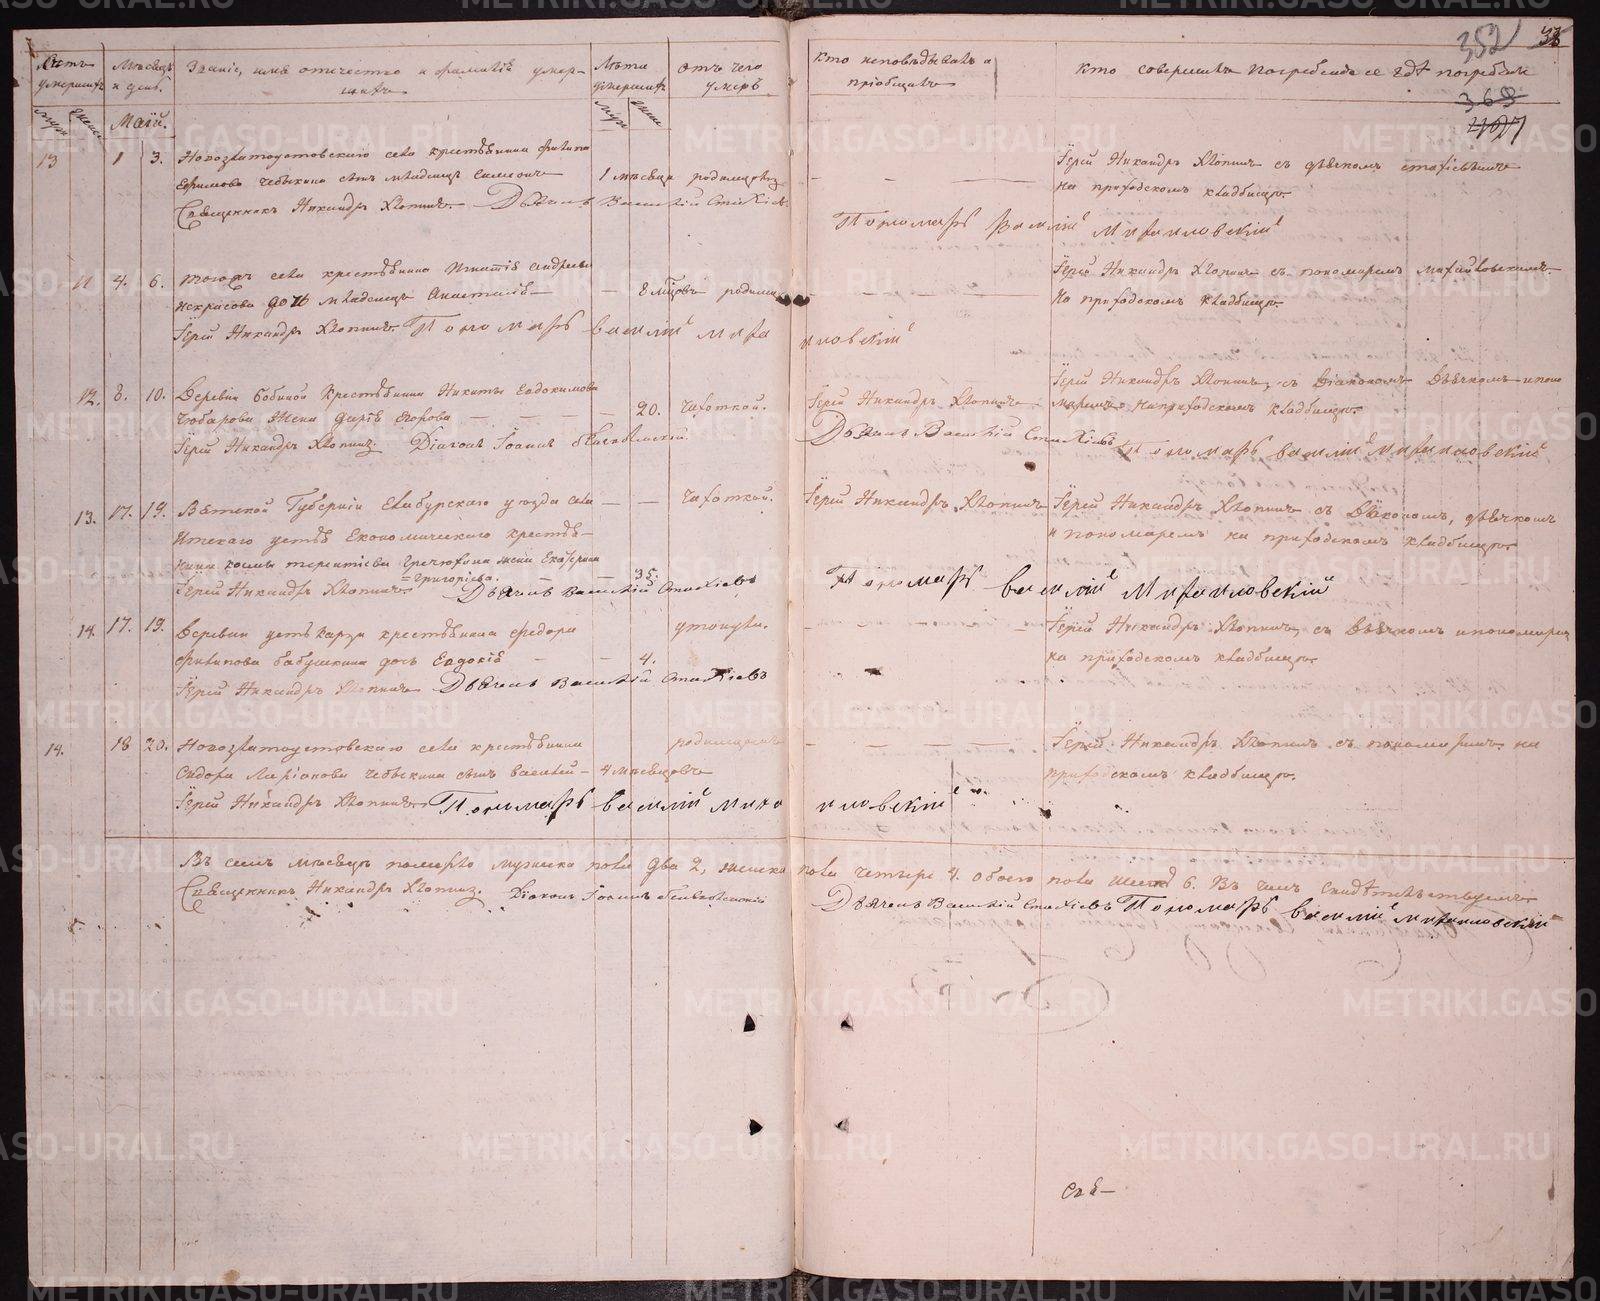 352
Счетъ умершихъ
Мѣсяцъ и день.
Званіе, имя отечество и фамилія умершихъ
Лѣта умершихъ
отъ чего умеръ
кто исповѣдывалъ и пріобщалъ
кто совершалъ погребеніе и гдѣ погребены
368
муж
женс
Маій.
муж
женс
13 1 3. Новозлатоустовскаго села крестьянина Филипа
Ефимова Чебыкина сынъ младенецъ Симеонъ 1 мѣсяца родимцовъ
Іерей Никандръ Хлопинъ съ дьячкомъ Стахіевымъ
на приходскомъ кладбищѣ.
Священникъ Никандръ Хлопинъ. Дьячекъ Василій Стахіевъ
Пономарь Василій Михайловскій
11 4. 6. тогожъ села крестьянина Игнатія Андреева
Некрасова дочь младенецъ Анастасія 8 мѣсяцовъ родимц
Іерей Никандръ Хлопинъ съ пономаремъ Михайловскимъ
на приходскомъ кладбищѣ.
Іерей Никандръ Хлопинъ. Пономарь Василій Михаиловскій
12. 8. 10. Деревни Бобиной Крестьянина Никиты Евдокимова
Чюбарова Жена Дарія 20. Чахоткой.
Іерей Никандръ Хлопинъ
Іерей Никандръ Хлопинъ, съ Діакономъ Дьячкомъ и пономаремъ на приходскомъ кладбищѣ.
Іерей Никандръ Хлопинъ. Діаконъ Іоаннъ
Дьячекъ Василій Стахіевъ
Пономарь Василій Михаиловскій
13. 17. 19. Вятской Губерніи Елабурскаго уѣзда села Чахоткой.
Іерей Никандръ Хлопинъ
Іерей Никандръ Хлопинъ съ Діякономъ, дьячкомъ
и пономаремъ на приходскомъ кладбищѣ.
устья Економическаго крестья-
нина Козмы Терентіева жена Екатерина
Григоріева. 35.
Іерей Никандръ Хлопинъ Дьячекъ Василій Стахіевъ
Пономарь Василій Михаиловскій
14. 17. 19. Деревни крестьянина Федора утонула.
Филипова Бабушкина дочь Евдокія 4.
Іерей Никандръ Хлопинъ, съ Дьячкомъ и пономаремъ
на приходскомъ кладбищѣ.
Іерей Никандръ Хлопинъ Дьячекъ Василій Стахіевъ
14. 18 20. Новозлатоустовскаго села крестьянина родимцомъ
Сидора Ларіонова Чебыкина сынъ Василей 4 мѣсяцовъ
Іерей Никандръ Хлопинъ съ пономаремъ на
приходскомъ кладбищѣ.
Іерей Никандръ Хлопинъ. Пономарь Василій Михаиловскій
Въ семъ мѣсяцѣ померло мужеска пола два 2, женска пола четыре 4. обоего пола шесть 6. Въ чемъ свидѣтельствуемъ
Священникъ Никандръ Хлопинъ. Діаконъ Іоаннъ
Дьячекъ Василій Стахіевъ Пономарь Василій Михаиловскій
METRIKI.GASO-URAL.RU